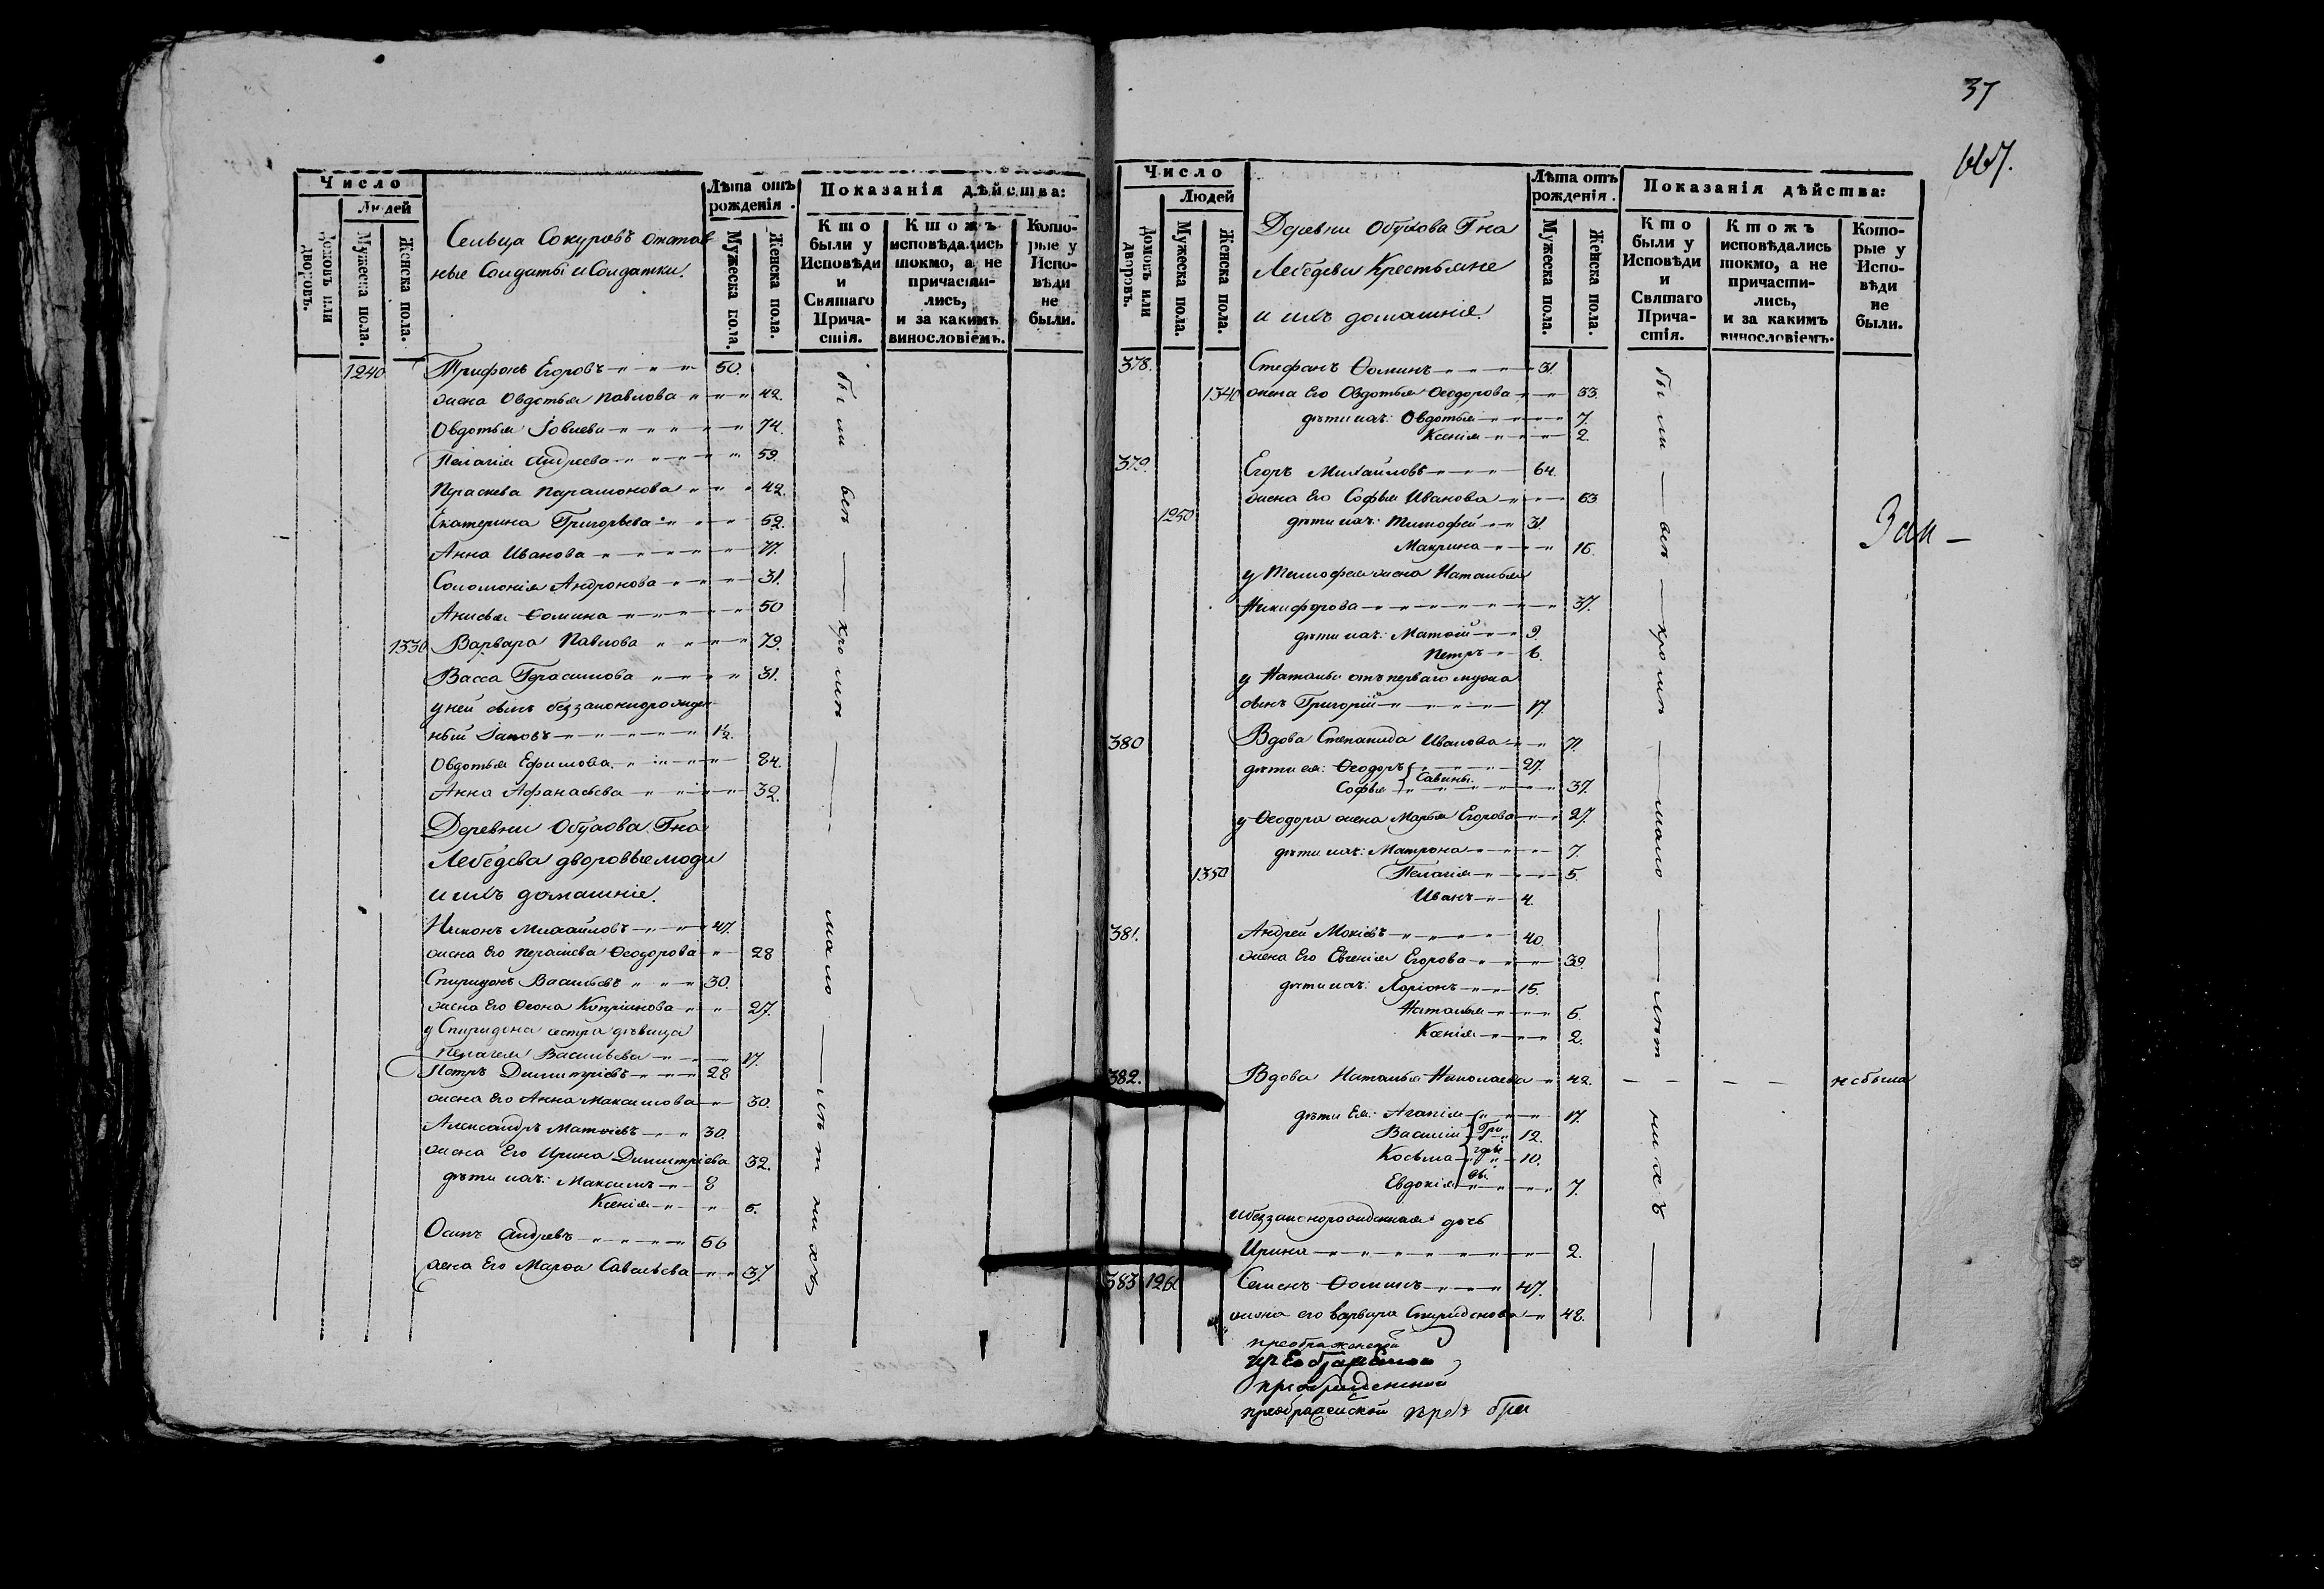 Число
Людей
Домовъ или дворовъ.
Мужеска пола.
Женска пола.
Сельца Сокуровъ отстав
ные Солдаты и Солдатки.
Лѣта отъ рожденія.
Мужеска пола.
Женска пола.
Показанія дѣйства:
Кто были у Исповѣди и Святаго Причастія.
Ктожъ исповѣдались токмо, а не причастились, и за какимъ винословіемъ.
Которые у Исповѣди не были.
1240 Трифонъ Егоровъ 50.
жена Овдотья Павлова 42.
Овдотья Іовлева 74.
Пелагія Андреева 59.
Пераскева Парамонова 42.
Екатерина Григорьева 52.
Анна Иванова 77.
Соломонія Андронова 31.
Анисья Ѳомина 50
1330 Варвара Павлова 79.
Васса Герасимова 31.
у ней сынъ беззаконнорожден
ный Іаковъ 1½.
Овдотья Ефимова 84.
Анна Афанасьева 32.
Деревни Обухова Гна
Лебедева дворовые люди
и ихъ домашніе.
Никонъ Михайловъ 47.
жена Его Пераскева Ѳеодорова 28
Спиридонъ Васильевъ 30.
жена Его Ѳеона Копріянова 27.
у Спиридона сестра дѣвица
Пелагея Васильева 17.
Петръ Димитріевъ 28
жена Его Анна Максимова 30.
Александръ Матѳіевъ 30.
жена Его Ирина Димитріева 32.
дѣти ихъ: Максимъ 8
Ксенія 5.
Осипъ Андреевъ 56
жена Его Марѳа Савельева 37.
были всѣ кромѣ малолѣтнихъ
37
667.
Число
Людей
Домовъ или дворовъ.
Мужеска пола.
Женска пола.
Деревни Обухова Гна
Лебедева Крестьяне
и ихъ домашніе.
Лѣта отъ рожденія.
Мужеска пола.
Женска пола.
Показанія дѣйства:
Кто были у Исповѣди и Святаго Причастія.
Ктожъ исповѣдались токмо, а не причастились, и за какимъ винословіемъ.
Которые у Исповѣди не были.
378. Стефанъ Ѳоминъ 31.
1340 жена Его Овдотья Ѳеодорова 33.
дѣти ихъ: Овдотья 7.
Ксенія 2.
379. Егоръ Михайловъ 64.
жена Его Софья Иванова 63
1250 дѣти ихъ: Тимофей 31.
Макрина 16.
у Тимофея жена Наталья
Никифорова 37.
дѣти ихъ: Матѳій 9.
Петръ 6.
у Натальи отъ перваго мужа
сынъ Григорій 17.
380 Вдова Степанида Иванова 71.
дѣти ея: Ѳеодоръ 27.
Савины.
Софья 37.
у Ѳеодора жена Марья Егорова 27.
дѣти ихъ: Матрона 7.
1350 Пелагія 5.
Иванъ 4.
381. Андрей Мокіевъ 40.
жена Его Евгенія Егорова 39.
дѣти ихъ: Ларіонъ 15.
Наталья 5.
Ксенія 2.
382. Вдова Наталья Николаева 42. не была
дѣти Ея: Агапія 17.
Василій Гри 12.
Косьма горье 10.
Евдокія вы. 7.
и беззаконорожденная дочь
Ирина 2.
383 1260 Семенъ Ѳоминъ 47.
жена его Варвара Спиридонова 48.
были всѣ кромѣ малолѣтнихъ
преображенской
преображенской
преображенской